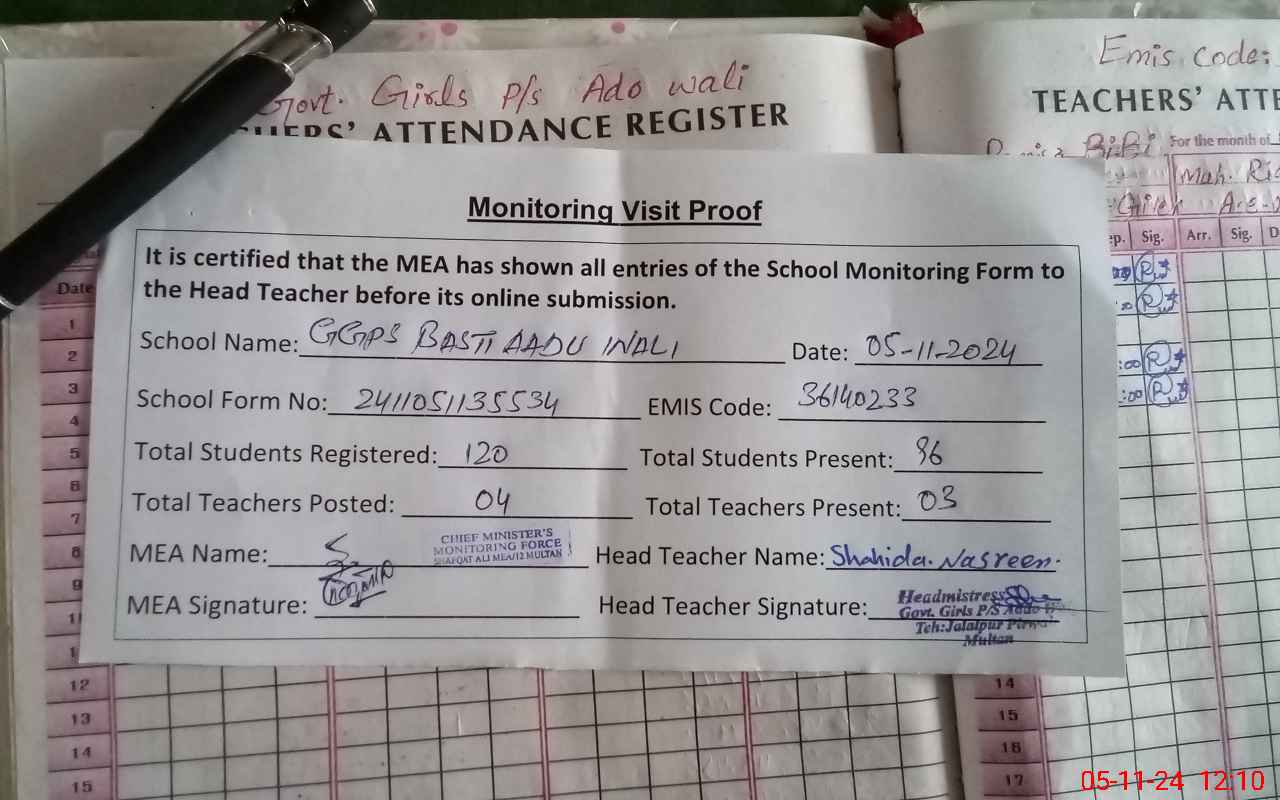 Govt. Girls P/s Ado wali
ATTENDANCE REGISTER
Emis Code:
TEACHERS' ATTE
BiBi For the month of
Mah.
Monitoring Visit Proof
It is certified that the MEA has shown all entries of the School Monitoring Form to
the Head Teacher before its online submission.
School Name: GGPS BASTI AADU WALI Date: 05-11-2024
School Form No: 2411051135534 EMIS Code: 36140233
Total Students Registered: 120 Total Students Present: 96
Total Teachers Posted: 04 Total Teachers Present: 03
MEA Name: CHIEF MINISTER'S
MONITORING FORCE
SHAFQAT ALI MEA/12 MULTAN
Head Teacher Name: Shahida. Nasreen.
MEA Signature: Head Teacher Signature: Headmistress
Govt. Girls P/S Addo
Teh: Jalalpur Pirwa
Multan
Date
1
2
3
4
5
6
7
8
9
12
13
14
15
ep. Sig. Arr. Sig. D
14
15
16
17
05-11-24 12:10